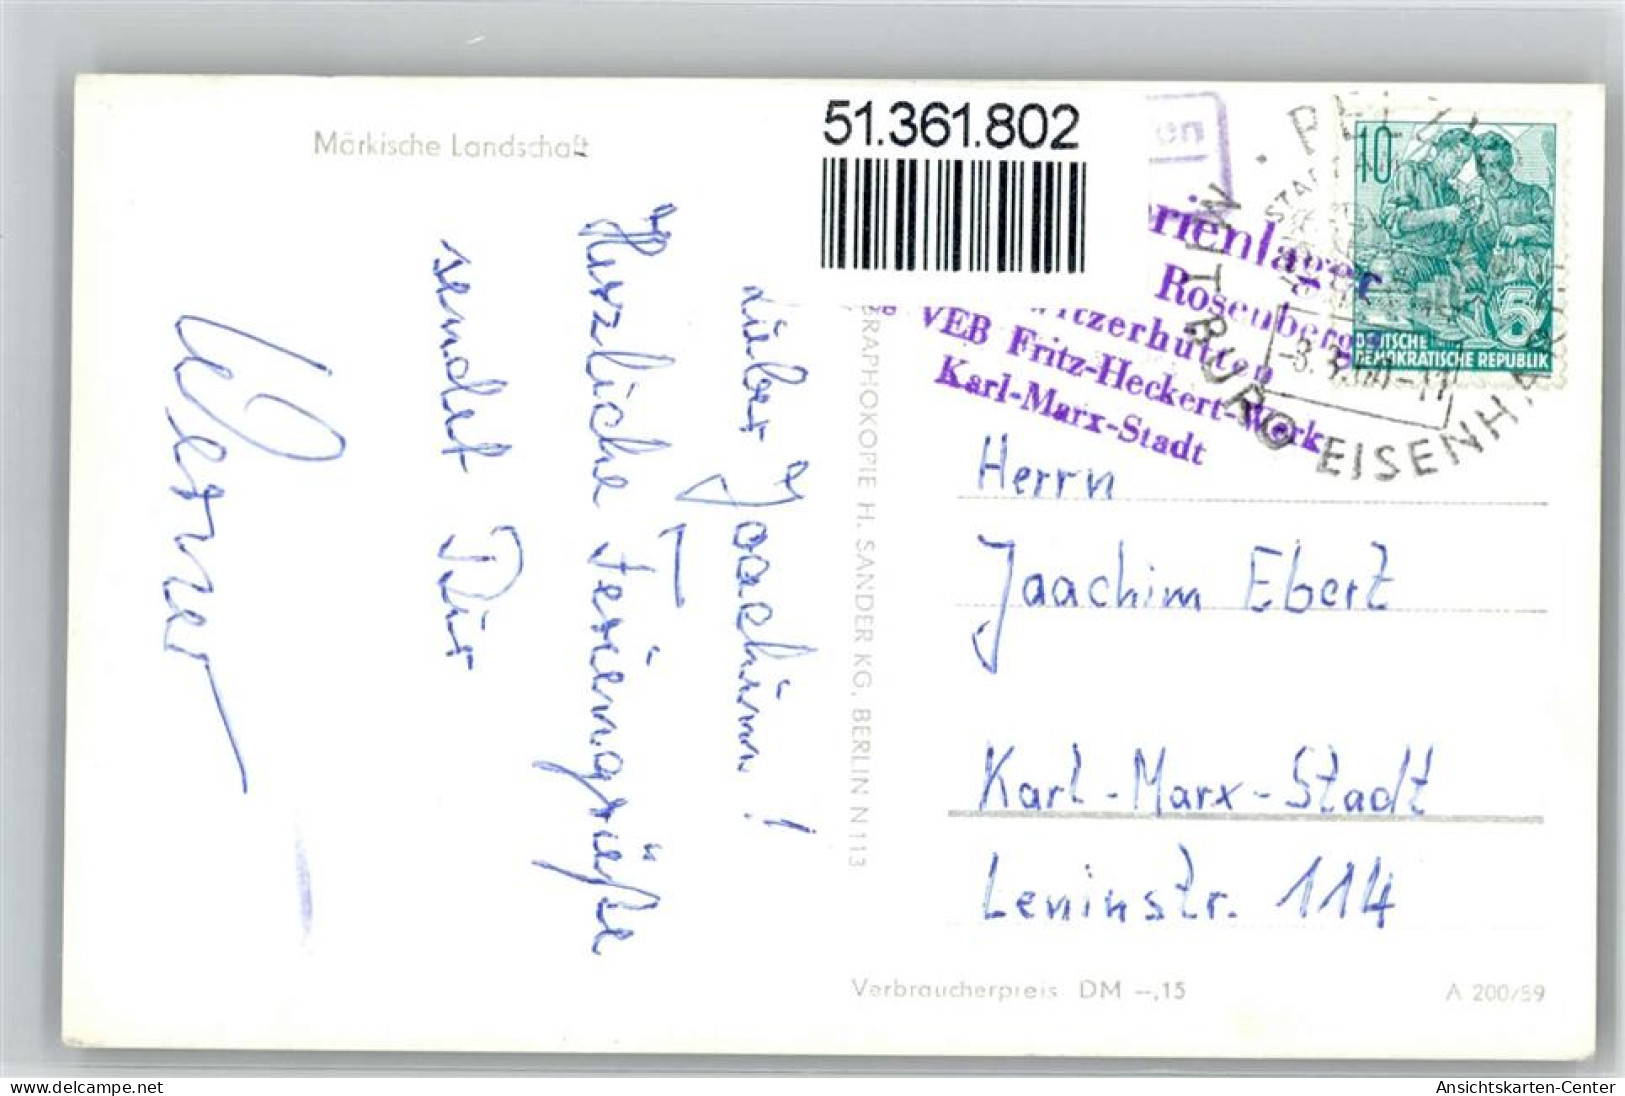 Märkische Landschaft
51.361.802
on
rienlager
Rosenberg
itzerhütten
VEB Fritz-Heckert-Werk
Karl-Marx-Stadt
MIT BURG EISENH
10
5
DEUTSCHE
DEMOKRATISCHE REPUBLIK
Lieber Joachim!
Herzliche Feriengrüße
sendet Dir
Werner
GRAPHOKOPIE H. SANDER KG, BERLIN N 113
Herrn
Jaachim Ebert
Karl-Marx-Stadt
Leninstr. 114
Verbraucherpreis DM –,15
A 200/59
delcampe.net
Ansichtskarten-Center